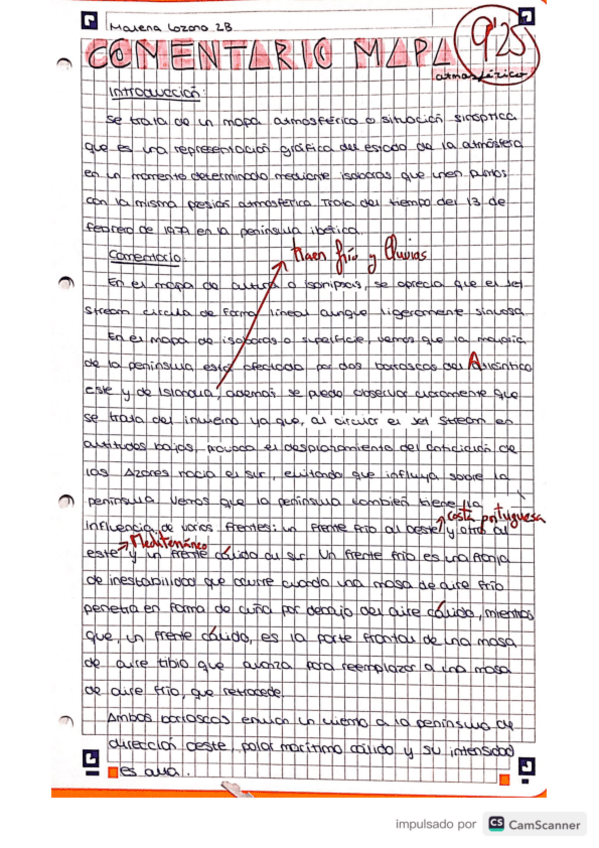 Morena Lozano 2B
9'25
COMENTARIO MAPA
atmosférico
Introducción:
Se trata de un mapa atmosférico o situación sinóptica
que es una representación gráfica del estado de la atmósfera
en un momento determinado mediante isobaras que unen puntos
con la misma presión atmosférica. Trata del tiempo del 13 de
febrero de 1979 en la península ibérica.
traen frío y lluvias
Comentario:
En el mapa de altura o isohipsas, se aprecia que el Jet
Stream circula de forma lineal aunque ligeramente sinuosa.
En el mapa de isobaras o superficie, vemos que la mayoría
de la península está afectada por dos borrascas del Atlántico
este y de Islandia, además se puede observar claramente que
se trata del invierno ya que, al circular el Jet Stream en
latitudes bajas, provoca el desplazamiento del anticiclón de
las Azores hacia el sur, evitando que influya sobre la
península. Vemos que la península también tiene la
costa portuguesa
influencia de varios frentes: un frente frío al oeste y otro al
Mediterráneo
este y un frente cálido al sur. Un frente frío es una franja
de inestabilidad que ocurre cuando una masa de aire frío
penetra en forma de cuña por debajo del aire cálido, mientras
que, un frente cálido, es la parte frontal de una masa
de aire tibio que avanza para reemplazar a una masa
de aire frío, que retrocede.
Ambas borrascas envían un viento a la península de
dirección oeste, polar marítimo cálido y su intensidad
es
impulsado por CS CamScanner